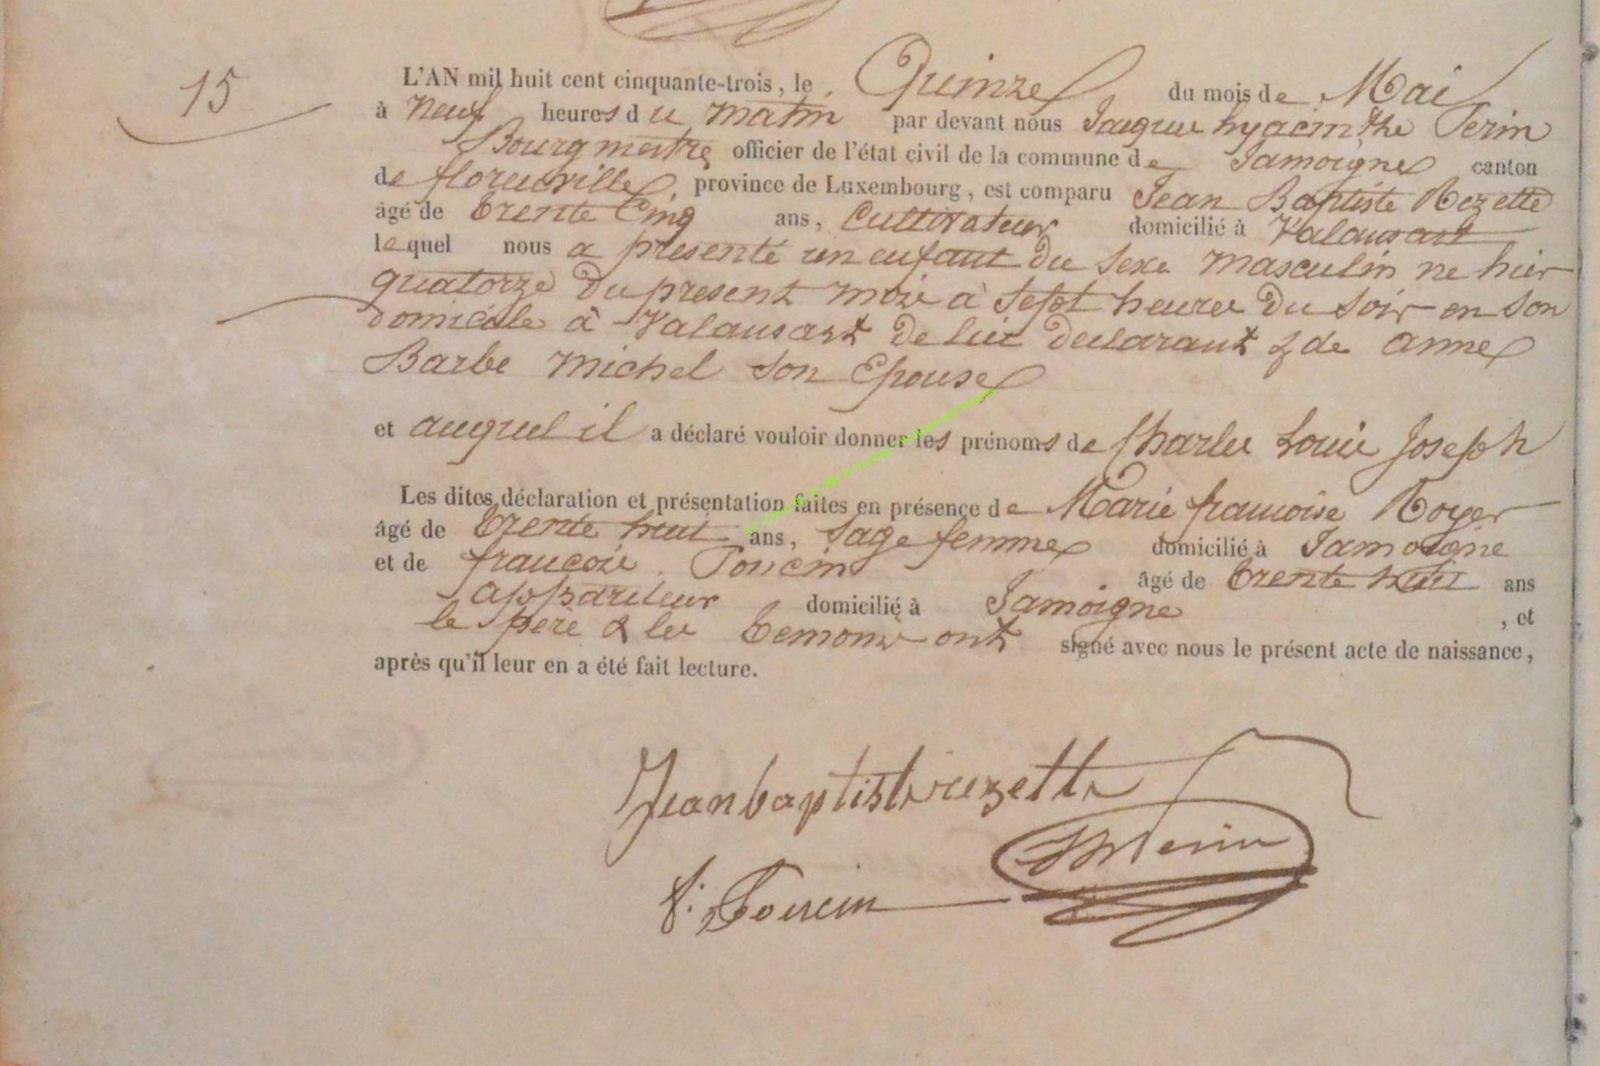 15
L'AN mil huit cent cinquante-trois, le Quinze du mois de Mai
à neuf heures du matin par devant nous Jaque hyacinthe Perin
Bourgmestre officier de l'état civil de la commune de Jamoigne canton
de florenville, province de Luxembourg, est comparu Jean Baptiste Rezette
âgé de trente Cinq ans, Cultivateur domicilié à Valansart
lequel nous a presenté un enfant du sexe masculin né hier
quatorze du present mois à sept heures du soir en son
domicile à Valansart de lui declarant & de anne
Barbe michel son Epouse
et auquel il a déclaré vouloir donner les prénoms de Charles Louis Joseph
Les dites déclaration et présentation faites en présence de Marie francoise Royer
âgé de trente huit ans, Sage femme domicilié à Jamoigne
et de francois Poncin âgé de trente huit ans
appariteur domicilié à Jamoigne , et
le père & les temoins ont signé avec nous le présent acte de naissance,
après qu'il leur en a été fait lecture.
Jean baptiste rezette
f: Poncin
Perin